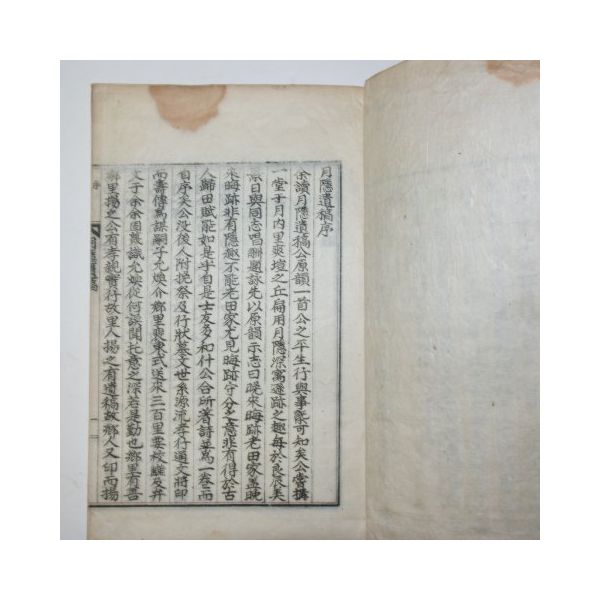 月隱遺稿序
余讀月隱遺稿公原韻一首公之平生行與事槩可知矣公嘗搆
一堂于月內里爽塏之丘扁用月隱深寓遯跡之趣每於良辰美
景日與同志唱酬題詠先以原韻示志曰晩來晦跡老田家盖晩
來晦跡非有隱趣不能老田家尤見晦跡守分之意非有得於古
人歸田賦能如是乎自是士友多和什公合所著詩並爲一卷而
自序矣公沒後人附挽祭及行狀墓文世系源流孝行通文將印
而壽傳焉謀嗣子允煥介鄕里裵東式送來三百里要校讎及弁
文于余余固蔑識允煥從何誤聞托意之深若是勤也鄕里有善
鄕里揚之公有孝親實行故里人揚之有遺稿故鄕人又印而揚
序